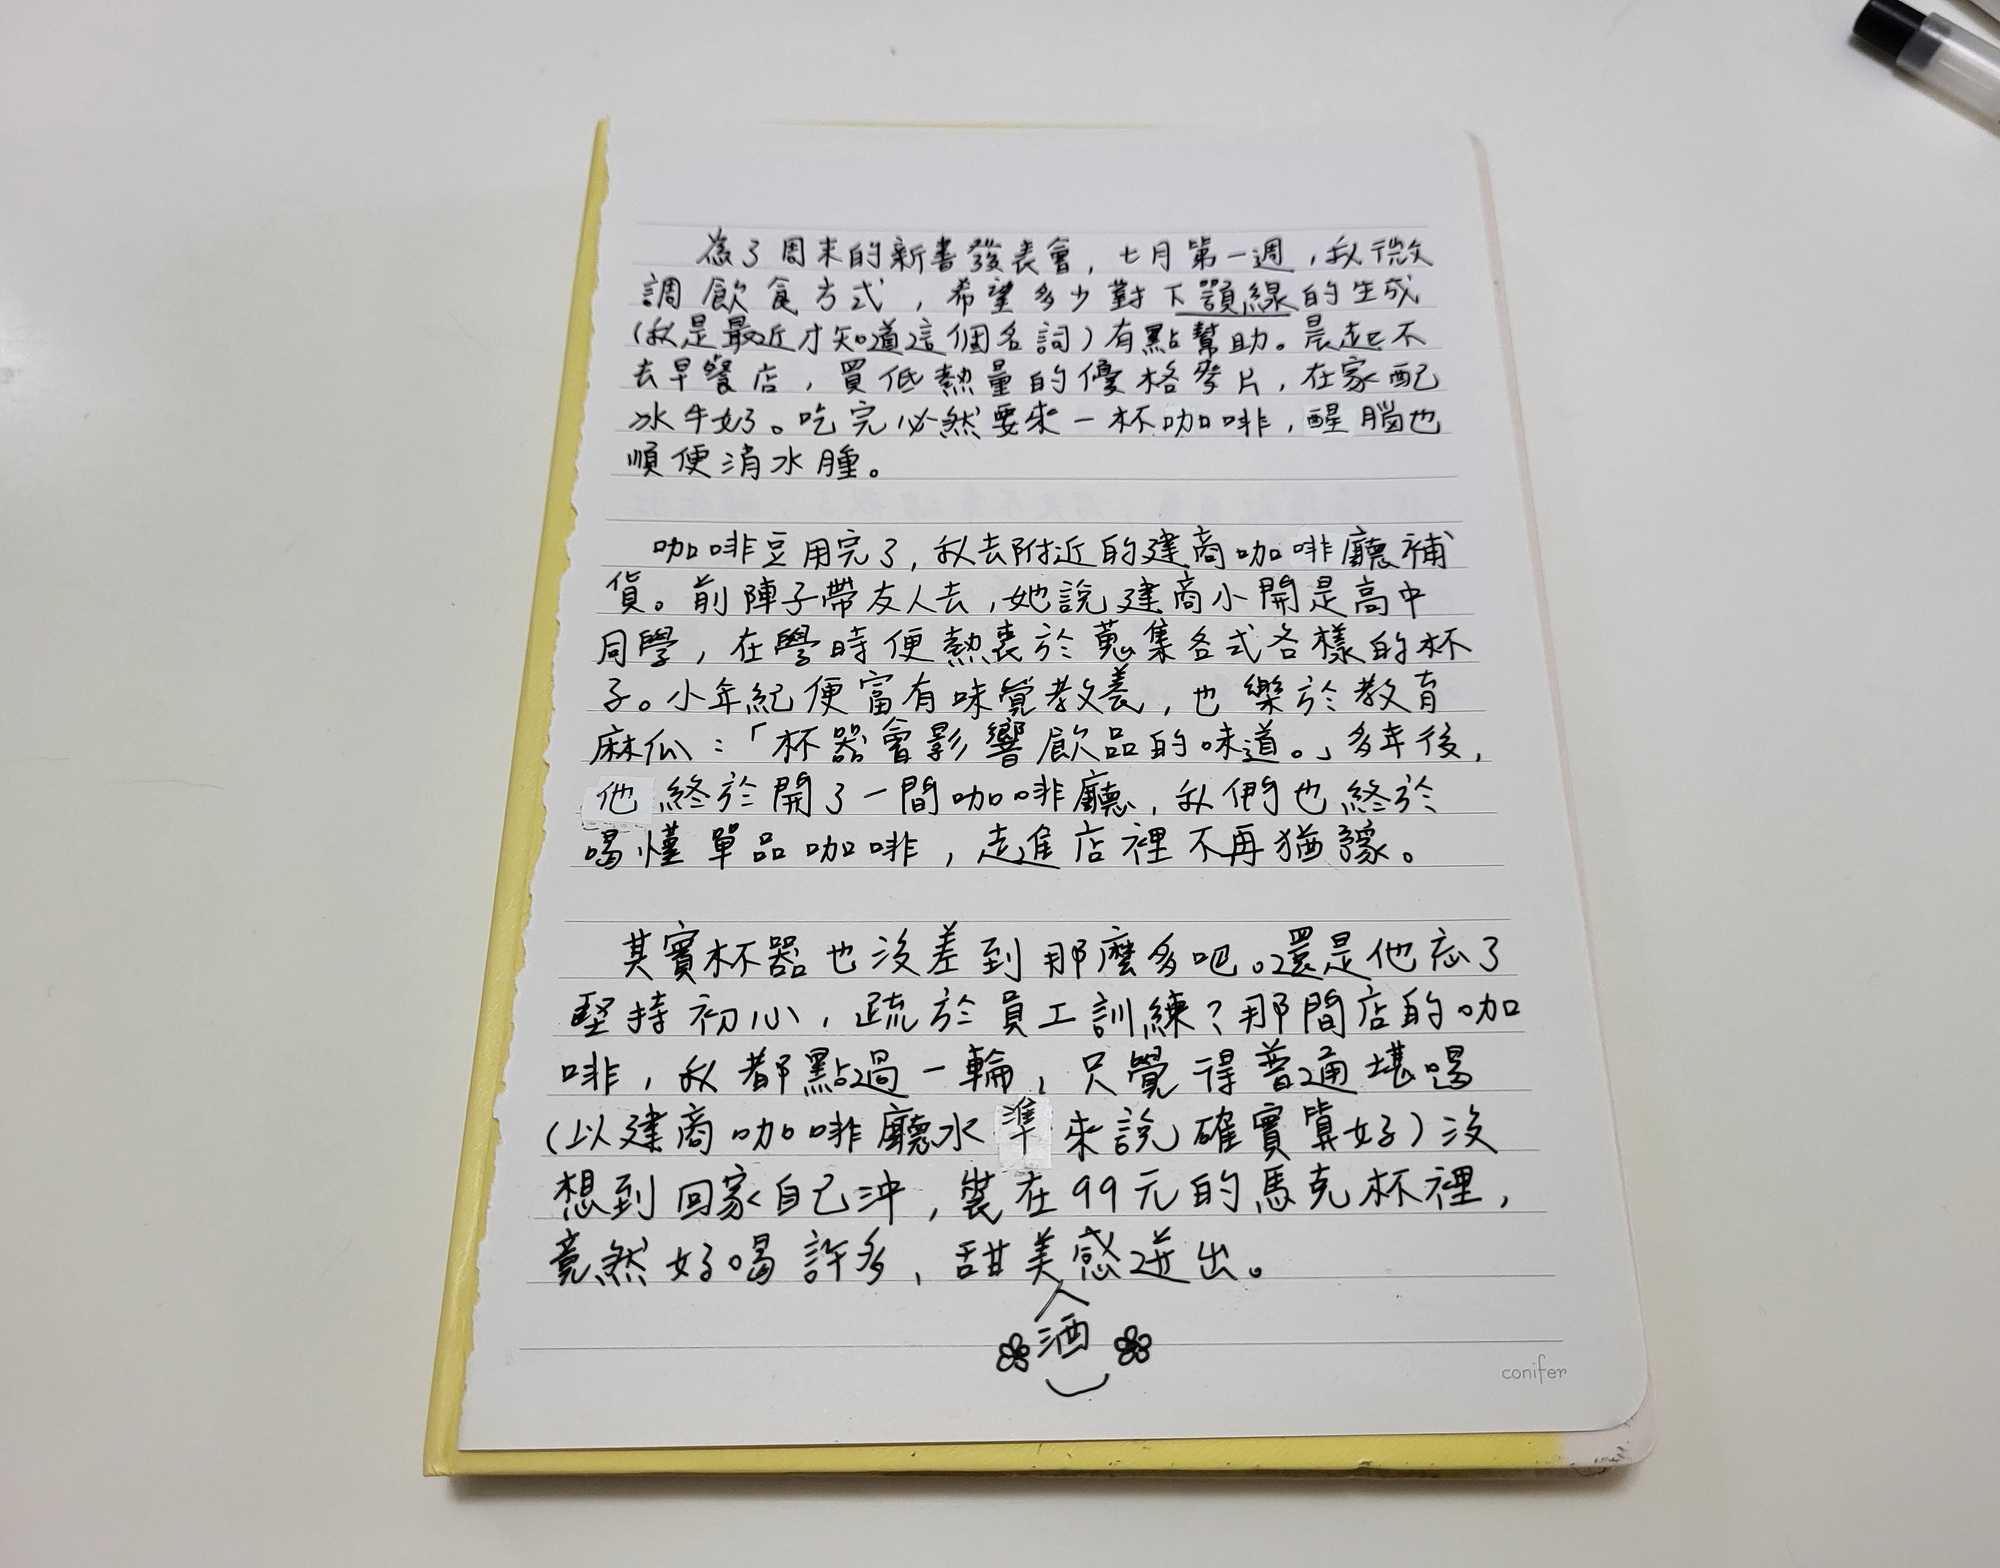 為了周末的新書發表會，七月第一週，我微
調飲食方式，希望多少對下顎線的生成
（我是最近才知道這個名詞）有點幫助。晨起不
去早餐店，買低熱量的優格麥片，在家配
冰牛奶。吃完必然要來一杯咖啡，醒腦也
順便消水腫。
咖啡豆用完了，我去附近的建商咖啡廳補
貨。前陣子帶友人去，她說建商小開是高中
同學，在學時便熱衷於蒐集各式各樣的杯
子。小年紀便富有味覺教養，也樂於教育
麻瓜：「杯器會影響飲品的味道。」多年後，
他終於開了一間咖啡廳，我們也終於
喝懂單品咖啡，走進店裡不再猶豫。
其實杯器也沒差到那麼多吧。還是他忘了
堅持初心，疏於員工訓練？那間店的咖
啡，我都點過一輪，只覺得普通堪喝
（以建商咖啡廳水準來說確實算好）沒
想到回家自己沖，裝在99元的馬克杯裡，
竟然好喝許多，甜美感迸出。
人
洒
conifer